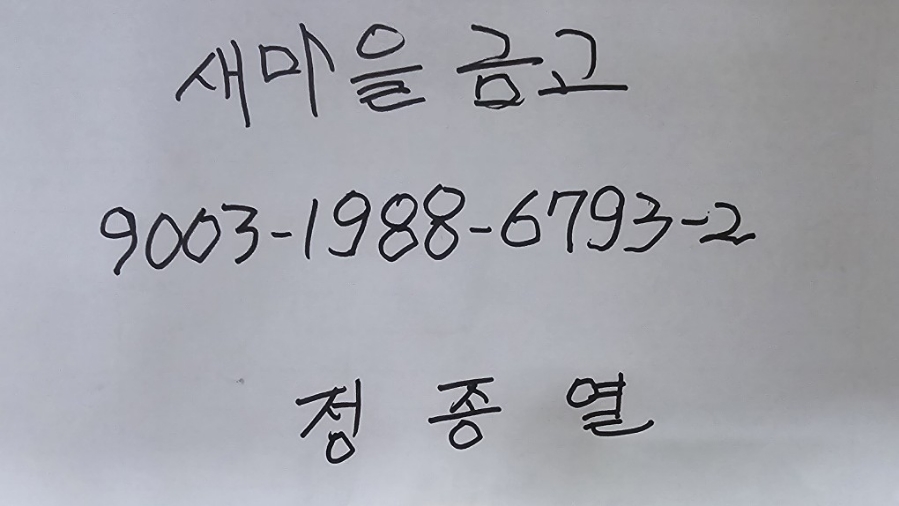 새마을금고
9003-1988-6793-2
정종열